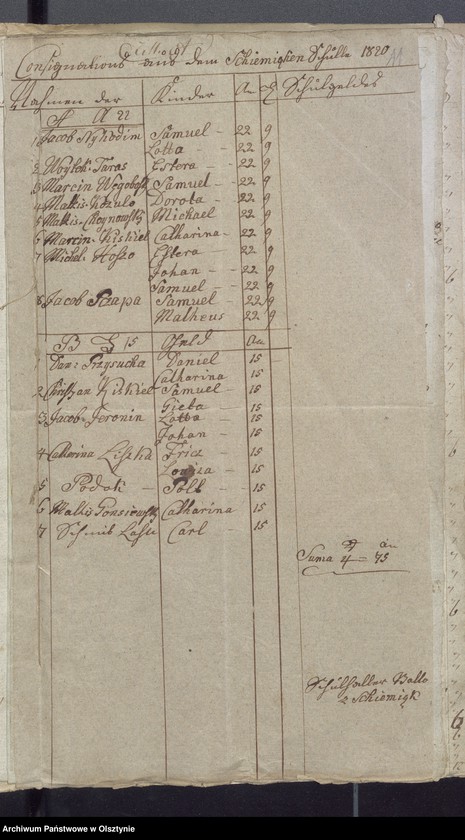 Consignations aus dem Schiemigken Schulle 1820
Nahmen der Kinder Schulgeldes
A 22
1 Jacob Nykodim Samuel 22 9
Lotta 22 9
2 Woytek Taras Estera 22 9
3 Marcin Samuel 22 9
4 Matis Kozulo Dorota 22 9
5 Matis Michael 22 9
6 Marcin Kiskiel Catharina 22 9
7 Michel Hosso Estera 22 9
Johan 22 9
Samuel 22 9
8 Jacob Szapa Samuel 22 9
Matheus 22 9
B 15
1 Dan: Przysucha Daniel 15
Catharina 15
2 Christian Kiskiel Samuel 15
Gieta 15
3 Jacob Jeronin Lotta 15
Johan 15
4 Catherina Liszka Fricz 15
Louiza 15
5 Podok 15
6 Matis Catharina 15
7 Schmid Carl 15
Suma 4 75
Schulhalter Ballo
Schiemigk
Archiwum Państwowe w Olsztynie